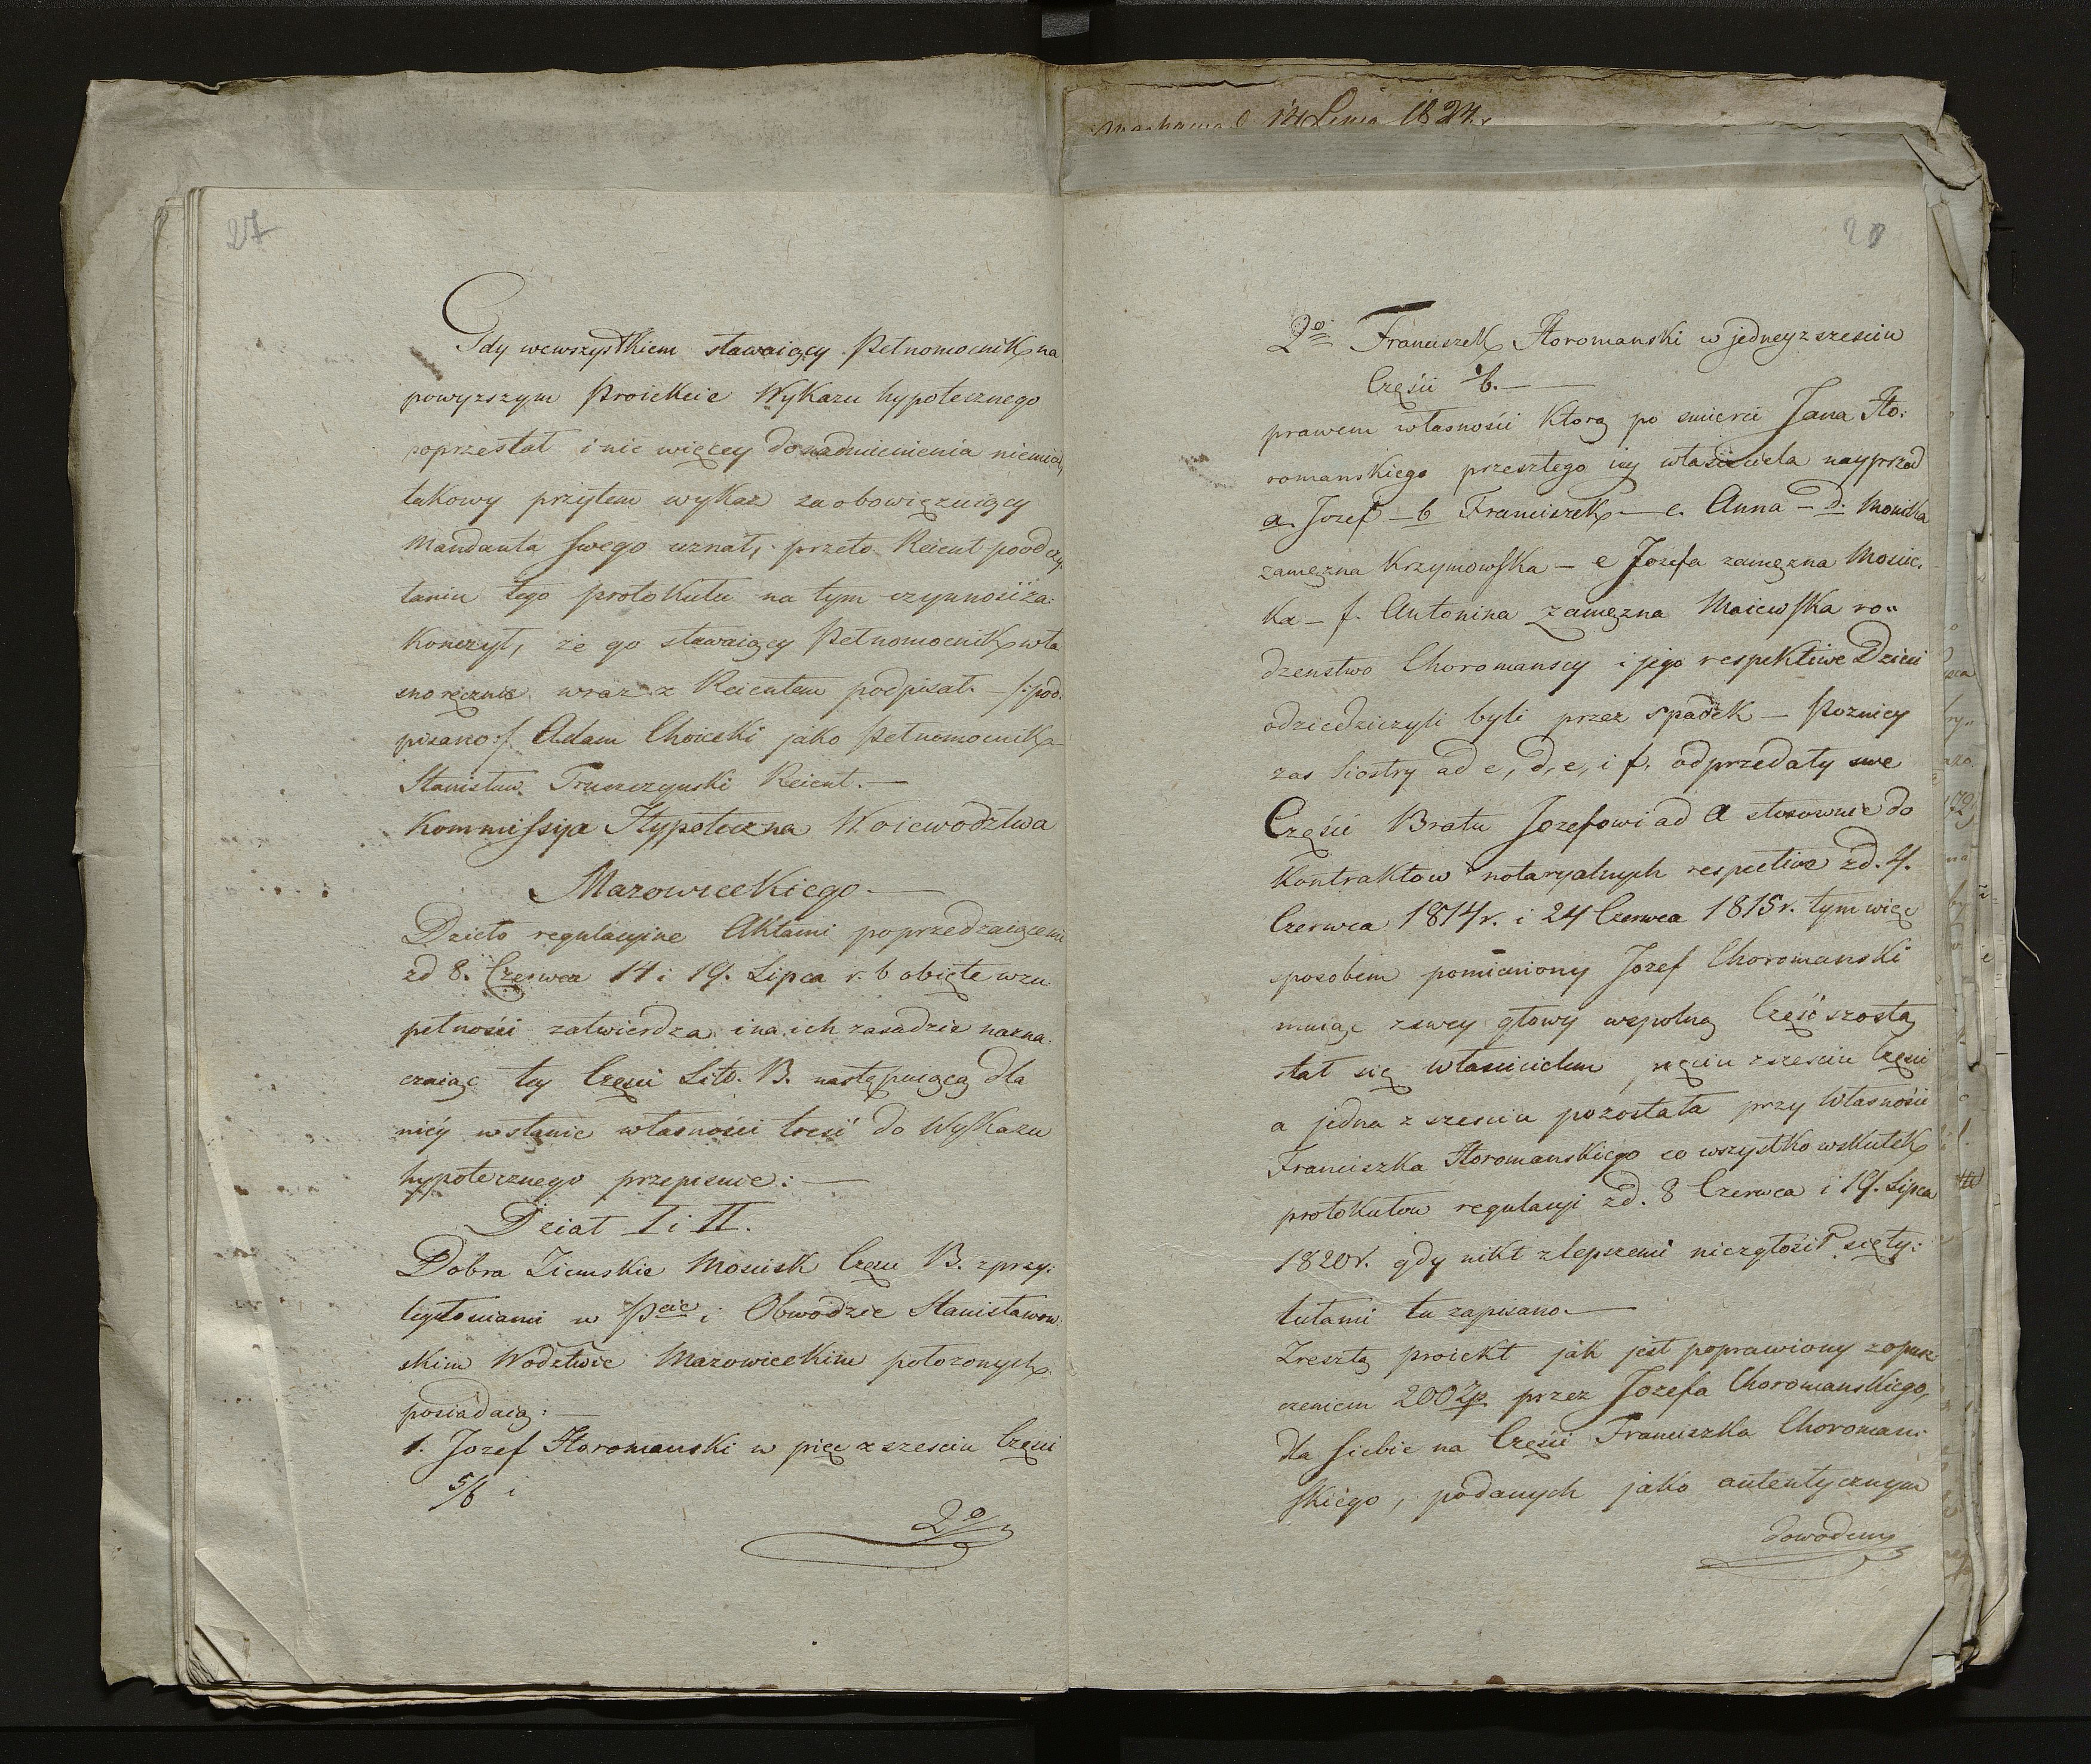 27
Gdy wewszystkiem stawaiący Pełnomocnik na
powyzszym Proiekcie Wykazu hypotecznego
poprzestał i nic więcey do nadmienienia niemiał,
takowy przytem wykaz za obowiązuiący
Mandanta swego uznał, przeto Reient poodczy:
taniu tego protokułu na tym czynność za:
konczył, że go stawaiący Pełnomocnik wła
snoręcznie wraz z Reientem podpisał. – /:pod:
pisano:/ Adam Choiecki jako Pełnomocnik –
Stanisław Truszczynski Reient. –
Kommissya Hypoteczna Woiewodztwa
Mazowieckiego. –
Dzieło regulacyine Aktami poprzedzaiącemi
zd 8. Czerwca 14 i 19. Lipca r. b obięte wzu:
pełności zatwierdza i na ich zasadzie nazna:
czaiąc tey Części Litt. B. następuiącą dla
niéy w stanie własności treść do Wykazu
hypotecznego przepisuie: –
Dział I i II.
Dobra Ziemskie Mosisk Części B. z przy:
ległosciami w Pcie i Obwodzie Stanisławow:
skim Wodztwie Mazowieckim połozonych
posiadaią: –
1. Jozef Horomanski w pięc z szesciu Części
5/6 i
2o
14 1824.
2o Franciszek Horomanski w jedney z szesciu
Części 1/6. –
prawem własności ktorą po smierci Jana Ho:
romanskiego przeszłego iey właściciela nayprzod
a. Jozef – b Franciszek – c. Anna – d. Monika
zamęzna Krzymowska – e Jozefa zamęzna Mosiec:
ka – f. Antonina zamęzna Maiewska ro„
dzenstwo Choromanscy i jego respektive Dzieci
odziedziczyli byli przez spadek – Poznicy
zas Siostry ad c, d, e, i f. odprzedały swe
Części Bratu Jozefowi ad a stosownie do
Kontraktow notaryalnych respective zd. 4.
Czerwca 1814 r. i 24 Czerwca 1815 r. tym więc
sposobem pomieniony Jozef Choromanski
maiąc z swey głowy wspolną Część szostą
stał się Włascicielem pięciu z szesciu Części
a jedna z szesciu pozostała przy Własności
Franciszka Horomanskiego co wszystko wskutek
protokułow regulacyi zd. 8 Czerwca i 19. Lipca
1820 r. gdy nikt z lepszemi niezgłosił się ty:
tułami tu zapisano. –
Zresztą proiekt jak jest poprawiony z opusz:
czeniem 200 Zp przez Jozefa Choromanskiego,
dla siebie na Części Franciszka Choroman:
skiégo, podanych jako autentycznym
dowodem